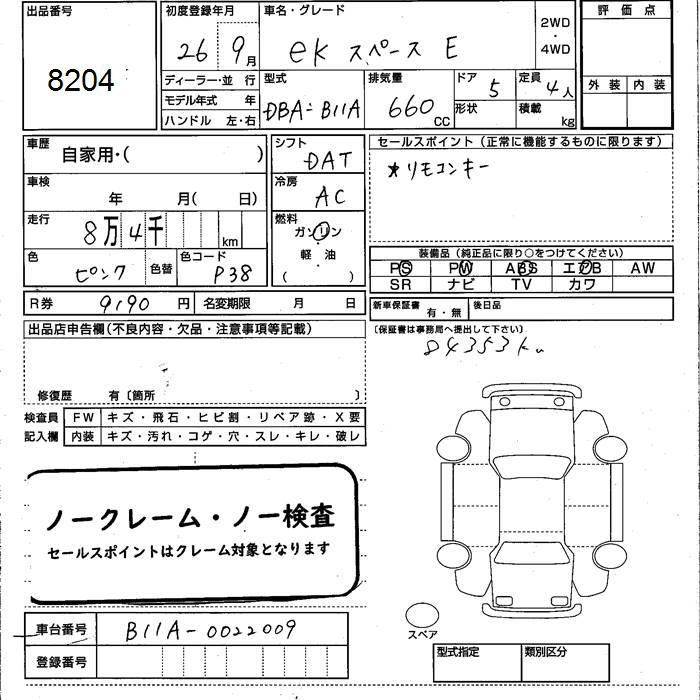 出品番号
8204
初度登録年月
26 9月
車名・グレード
ek スペース E
2WD
・
4WD
評価点
外装 内装
ディーラー・並 行
モデル年式 年
ハンドル 左・右
型式
DBA-B11A
排気量
660 CC
ドア 5
形状
定員 4人
積載 kg
車歴
自家用・( )
シフト
DAT
車検
年 月( 日)
冷房
AC
走行
8万4千 km
燃料
ガソリン
軽・油
( )
色
ピンク
色替
色コード
P38
R券 9190 円 名変期限 月 日
セールスポイント(正常に機能するものに限ります)
★リモコンキー
装備品(純正品に限り○をつけてください)
PS PW ABS エアB AW
SR ナビ TV カワ
新車保証書 有・無 後日品
(保証書は事務局へ提出して下さい)
84353km
出品店申告欄(不良内容・欠品・注意事項等記載)
修復歴 有〔箇所 〕
検査員
記入欄
FW キズ・飛石・ヒビ割・リペア跡・X要
内装 キズ・汚れ・コゲ・穴・スレ・キレ・破レ
ノークレーム・ノー検査
セールスポイントはクレーム対象となります
車台番号 B11A-0022009
登録番号
スペア
型式指定 類別区分